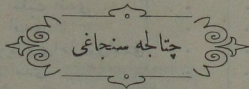 چتالجه سنجاغی